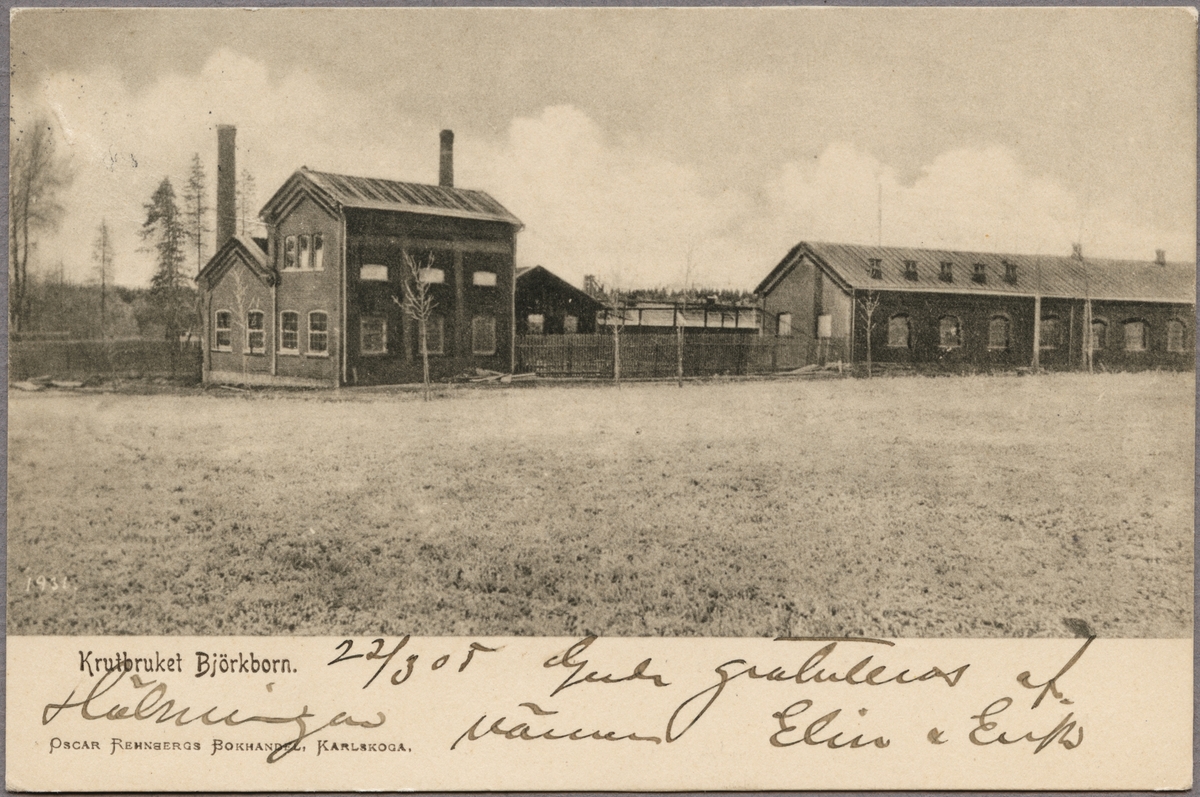 1931.
Krutbruket Björkborn. 22/3 05 gratuleras af
Hälsningar vännen Elin & Erik
OSCAR REHNBERGS BOKHANDEL, KARLSKOGA.